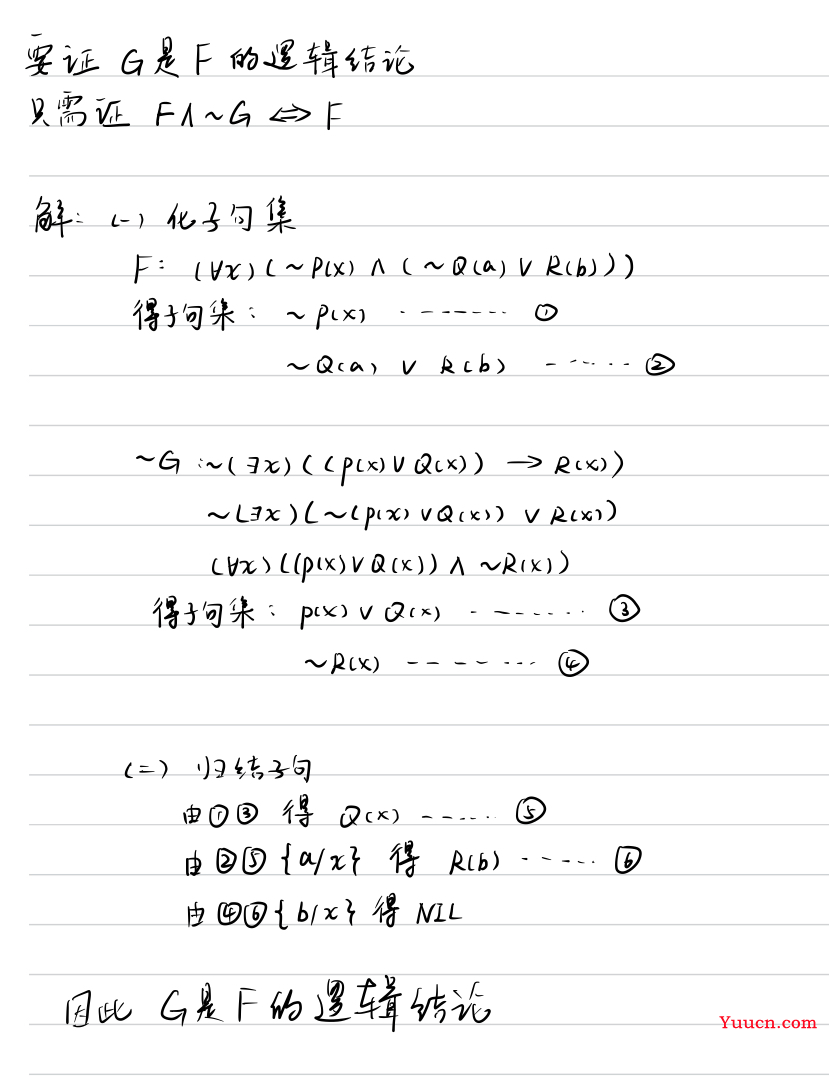 要证 G是F的逻辑结论
只需证 F∧~G ⇔ F
解: (一) 化子句集
F: (∀x)(~P(x) ∧ (~Q(a) ∨ R(b)))
得子句集: ~P(x) -------- ①
~Q(a) ∨ R(b) ------ ②
~G:~(∃x)((P(x)∨Q(x)) → R(x))
~(∃x)(~(P(x)∨Q(x)) ∨ R(x))
(∀x)((P(x)∨Q(x)) ∧ ~R(x))
得子句集: P(x)∨Q(x) -------- ③
~R(x) -------- ④
(二) 归结子句
由①③ 得 Q(x) ------ ⑤
由②⑤{a/x} 得 R(b) ------ ⑥
由④⑥{b/x} 得 NIL
因此 G是F的逻辑结论
Yuucn.com